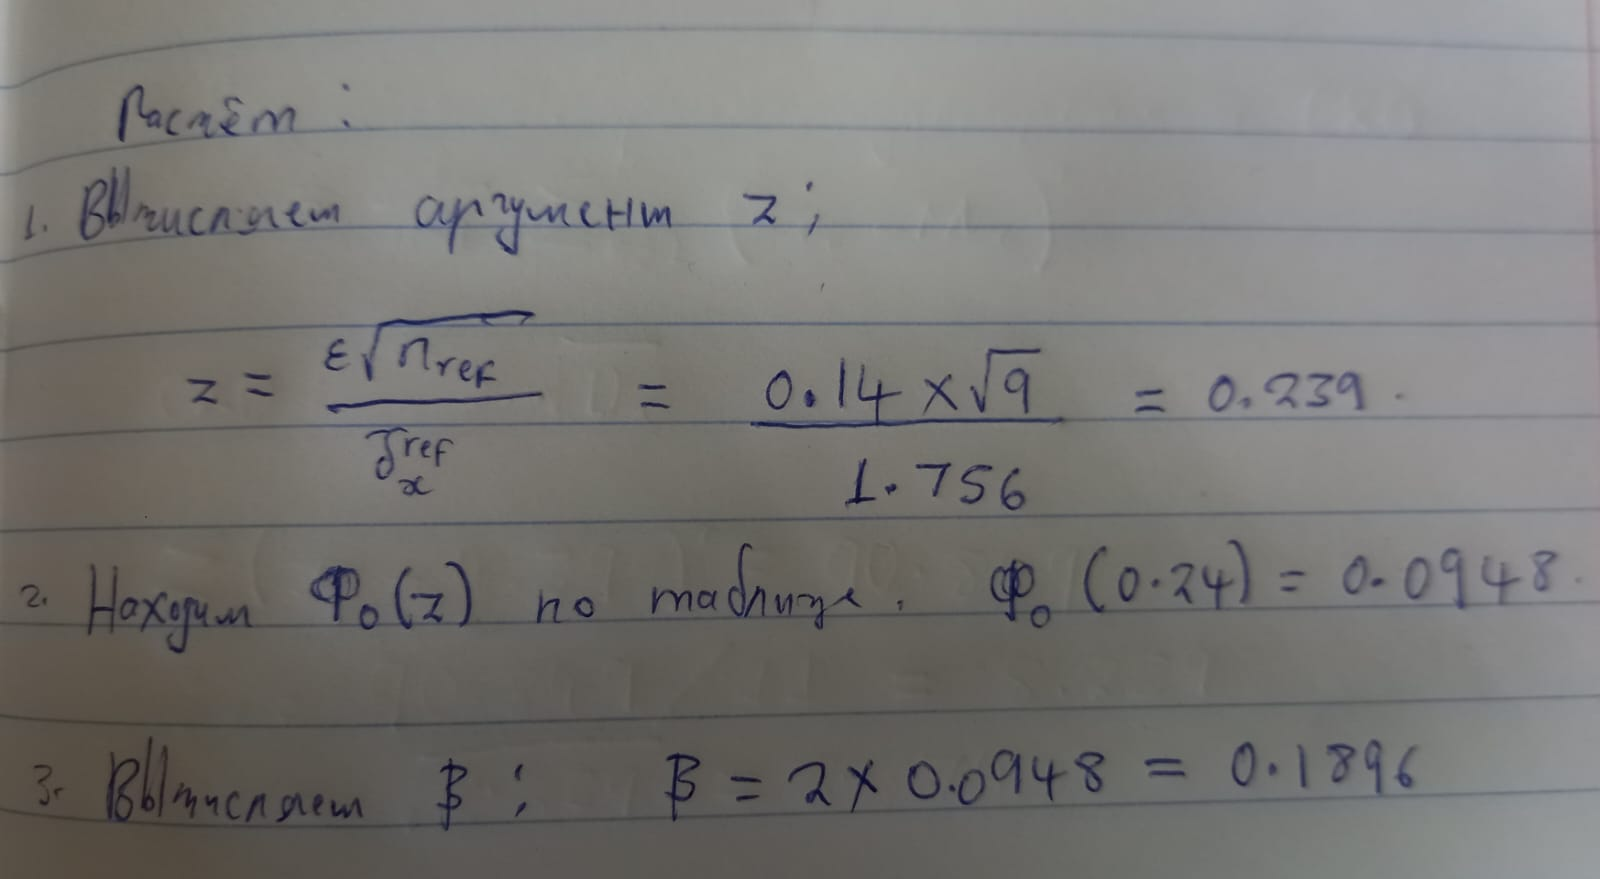 Расчёт :
1. Вычисляем аргумент z ;
z = ε√n_ref / σ_x^ref = 0.14 × √9 / 1.756 = 0.239.
2. Находим Ф₀(z) по таблице. Ф₀ (0.24) = 0.0948.
3. Вычисляем β ; β = 2 × 0.0948 = 0.1896